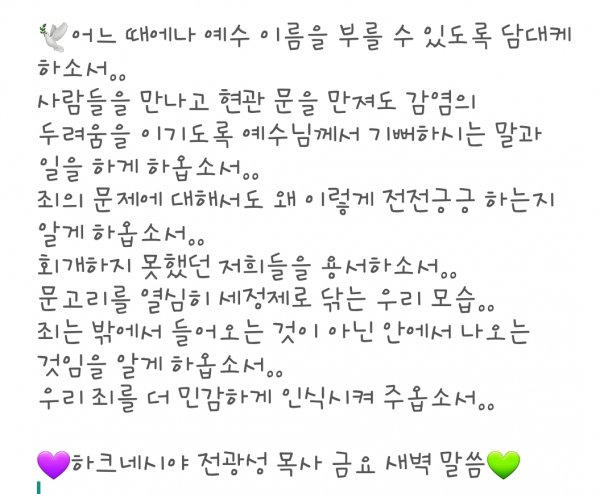 🕊어느 때에나 예수 이름을 부를 수 있도록 담대케
하소서。。
사람들을 만나고 현관 문을 만져도 감염의
두려움을 이기도록 예수님께서 기뻐하시는 말과
일을 하게 하옵소서。。
죄의 문제에 대해서도 왜 이렇게 전전긍긍 하는지
알게 하옵소서。。
회개하지 못했던 저희들을 용서하소서。。
문고리를 열심히 세정제로 닦는 우리 모습。。
죄는 밖에서 들어오는 것이 아닌 안에서 나오는
것임을 알게 하옵소서。。
우리 죄를 더 민감하게 인식시켜 주옵소서。。
💜하크네시야 전광성 목사 금요 새벽 말씀💚